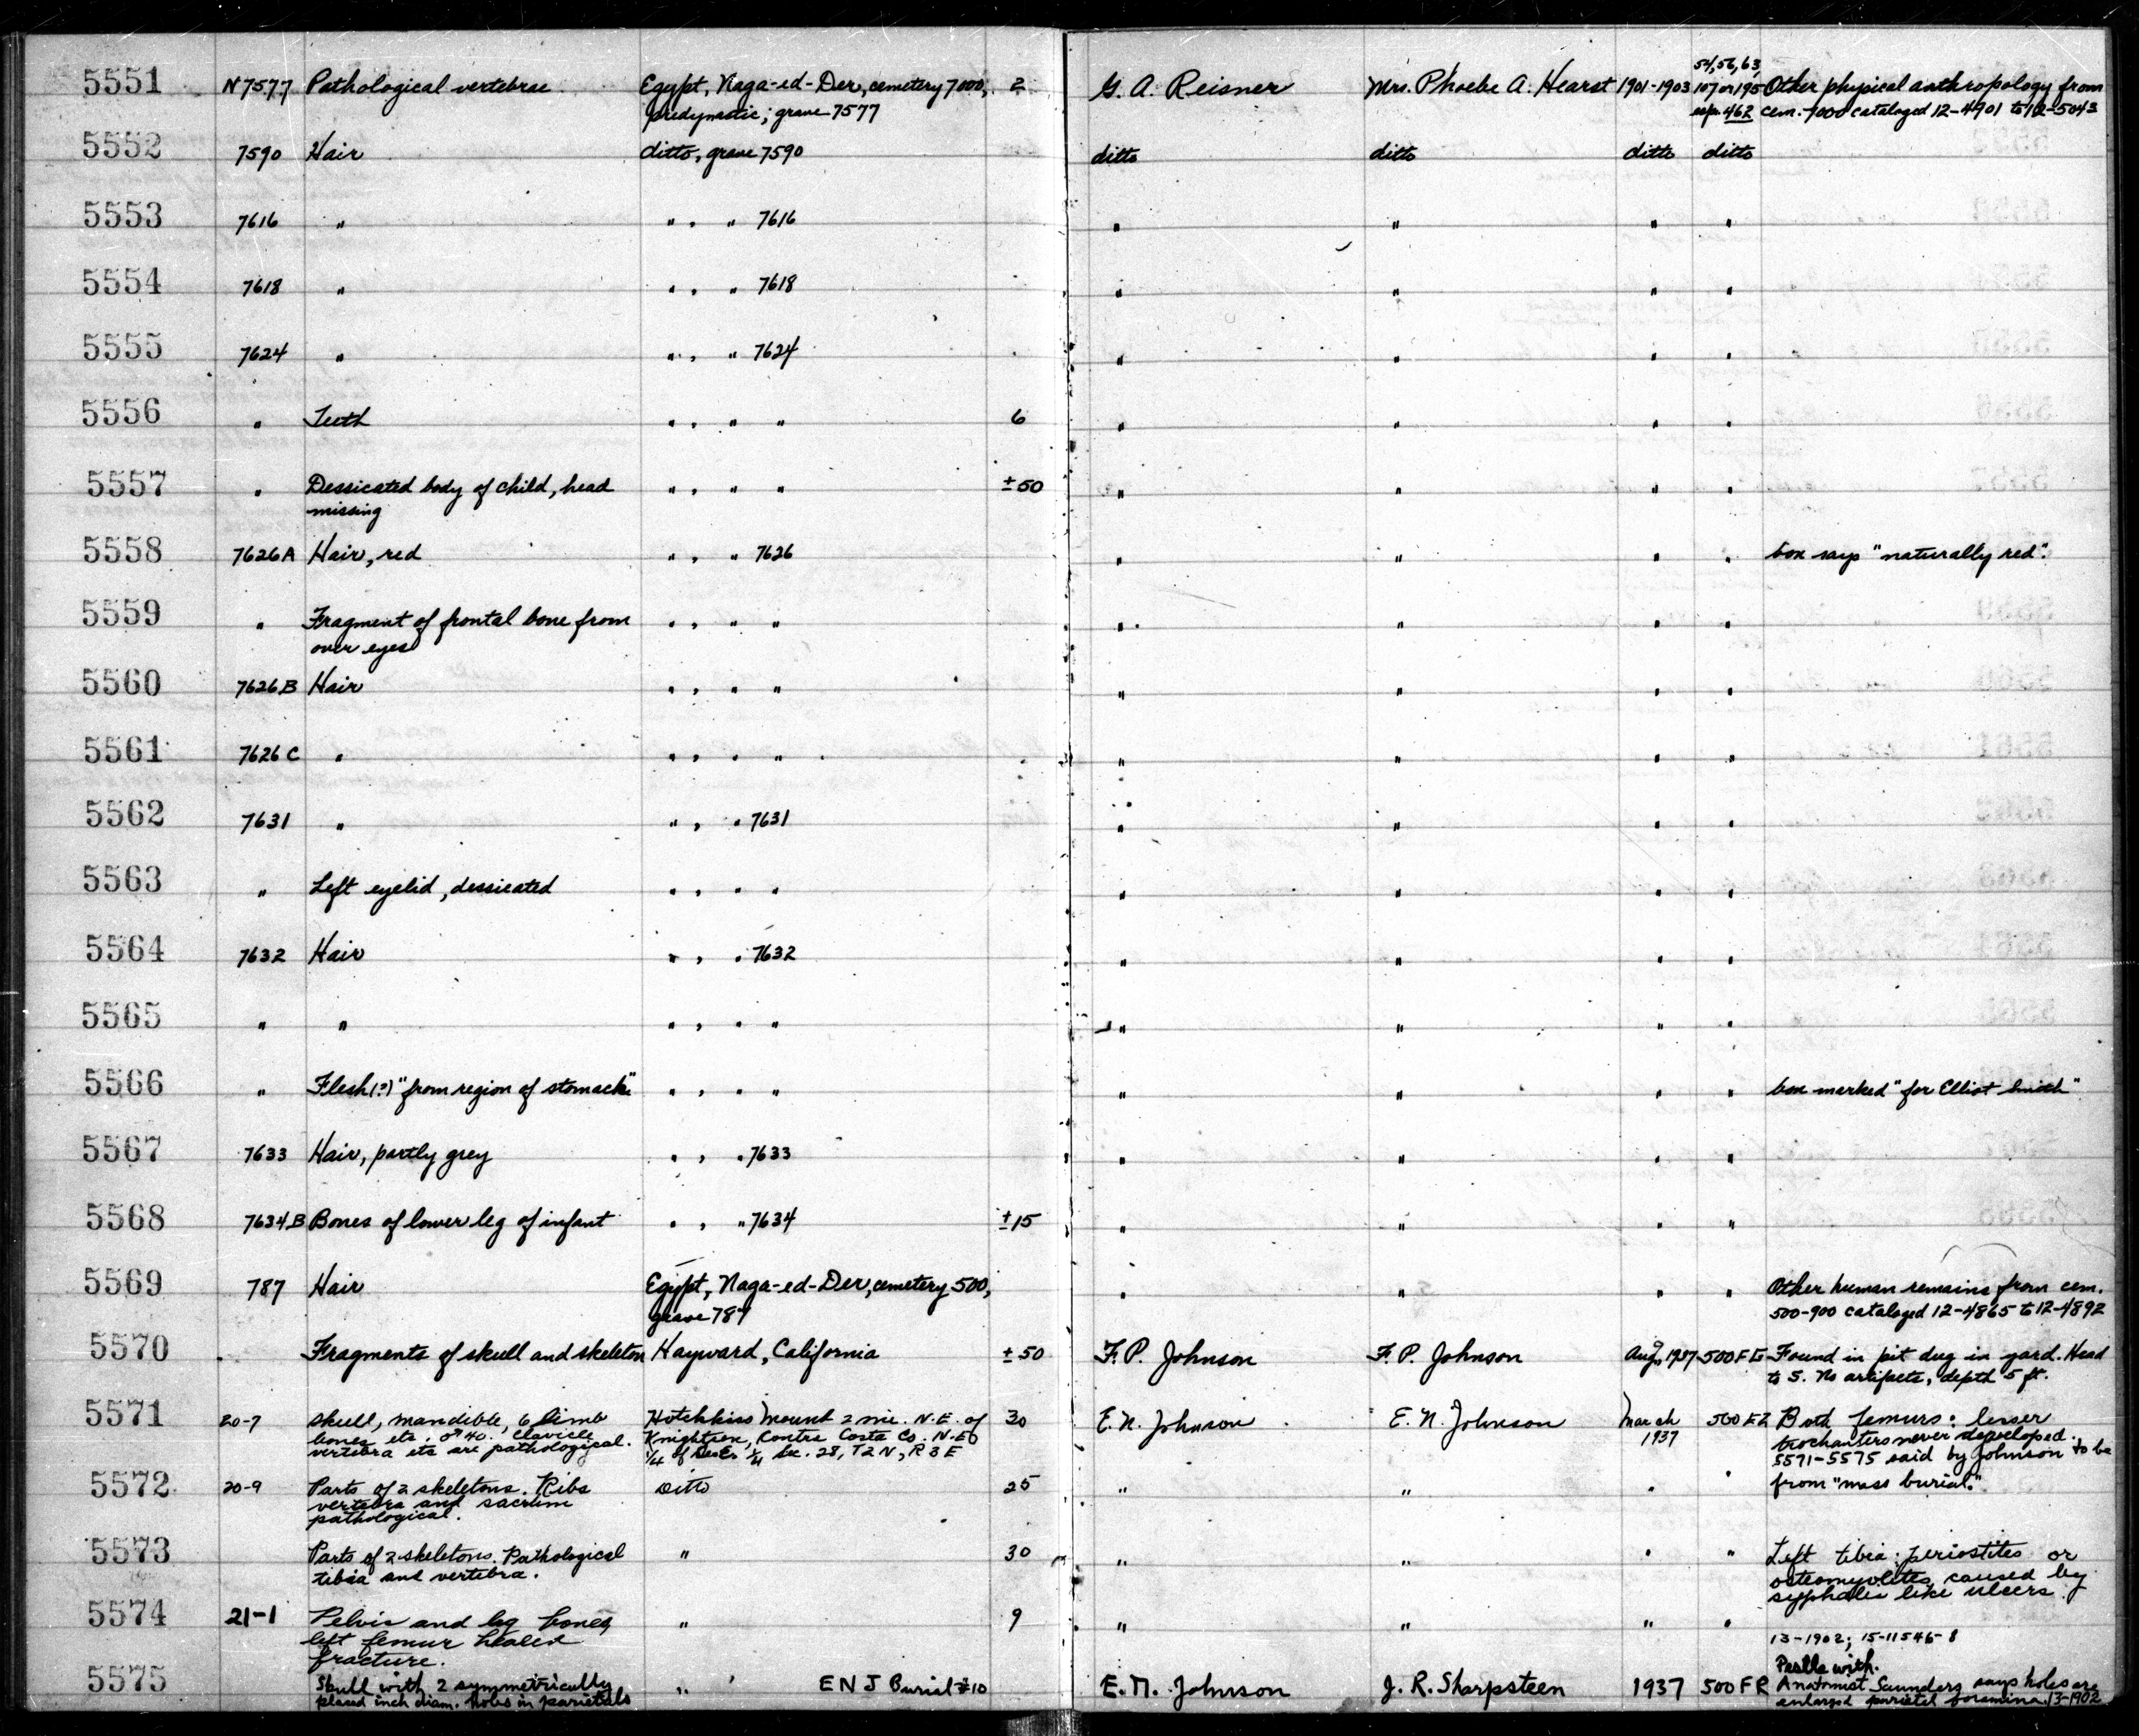 5551 N7577 Pathological vertebrae Egypt, Naga-ed-Der, cemetery 7000, 2 G. A. Reisner Mrs. Phoebe A. Hearst 1901-1903 54, 56, 63, 107 or 195 Other physical anthropology from
predynastic; grave 7577 esp. 462 cem. 7000 cataloged 12-4901 to 12-5043
5552 7590 Hair ditto, grave 7590 ditto ditto ditto ditto
5553 7616 " " , " 7616 " " " "
5554 7618 " " , " 7618 " " " "
5555 7624 " " , " 7624 " " " "
5556 " Teeth " , " " 6 " " " "
5557 " Dessicated body of child, head " , " " ±50 " " " "
missing
5558 7626A Hair, red " , " 7626 " " " " box says "naturally red".
5559 " Fragment of frontal bone from " , " " " " " "
over eyes
5560 7626B Hair " , " " " " " "
5561 7626C " " , " " " " " "
5562 7631 " " , " 7631 " " " "
5563 " Left eyelid, dessicated " , " " " " " "
5564 7632 Hair " , " 7632 " " " "
5565 " " " , " " " " " "
5566 " Flesh(?) "from region of stomach" " , " " " " " " box marked "for Elliot Smith"
5567 7633 Hair, partly grey " , " 7633 " " " "
5568 7634B Bones of lower leg of infant " , " 7634 ±15 " " " "
5569 787 Hair Egypt, Naga-ed-Der, cemetery 500, " " " " Other human remains from cem.
grave 787 500-900 cataloged 12-4865 to 12-4892
5570 Fragments of skull and skeleton Hayward, California ±50 F. P. Johnson F. P. Johnson Aug, 1937 500FG Found in pit dug in yard. Head
to S. No artifacts, depth 5 ft.
5571 20-7 Skull, mandible, 6 limb Hotchkiss Mount 2 mi. N.E. of 30 E. N. Johnson E. N. Johnson March 500 EZ Both femurs: lesser
bones etc. ♂ 40. Clavicle Knightsen, Contra Costa Co. N.E. 1937 trochanters never developed.
vertebra etc are pathological. 1/4 of 1/4 Sec. 28, T2N, R3E 5571-5575 said by Johnson to be
5572 20-9 Parts of 2 skeletons. Ribs Ditto 25 " " " " from "mass burial."
vertebra and sacrum
pathological.
5573 Parts of 2 skeletons. Pathological " 30 " " " " Left tibia: periostites or
tibia and vertebra. osteomyolites caused by
syphales like ulcers.
5574 21-1 Pelvis and leg bones " 9 " " " "
left femur healed
fracture. 13-1902; 15-11546-8
Pestle with.
5575 Skull with 2 symmetrically " " ENJ Burial #10 E. N. Johnson J. R. Sharpsteen 1937 500FR Anatomist Saunders says holes are
placed inch diam. holes in parietals enlarged parietal foramina. 13-1902